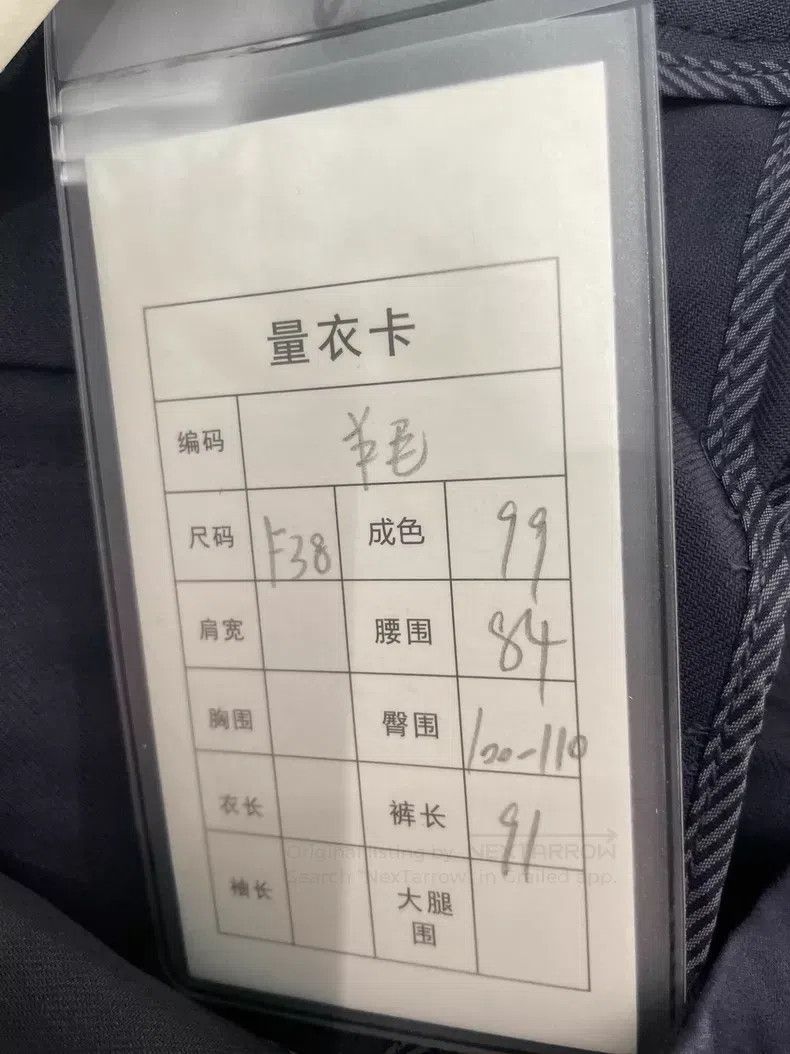 量衣卡
编码 羊毛
尺码 F38 成色 99
肩宽 腰围 84
胸围 臀围 100-110
衣长 裤长 91
袖长 大腿围
Original listing by NEXTARROW
Search "NexTarrow" in Grailed app.